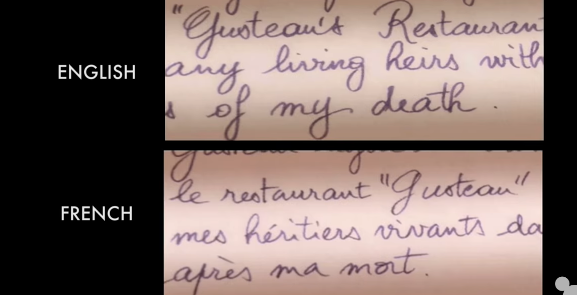 ENGLISH
"Gusteau's Restaurant
any living heirs with
s of my death.
FRENCH
le restaurant "Gusteau"
mes héritiers vivants da
après ma mort.